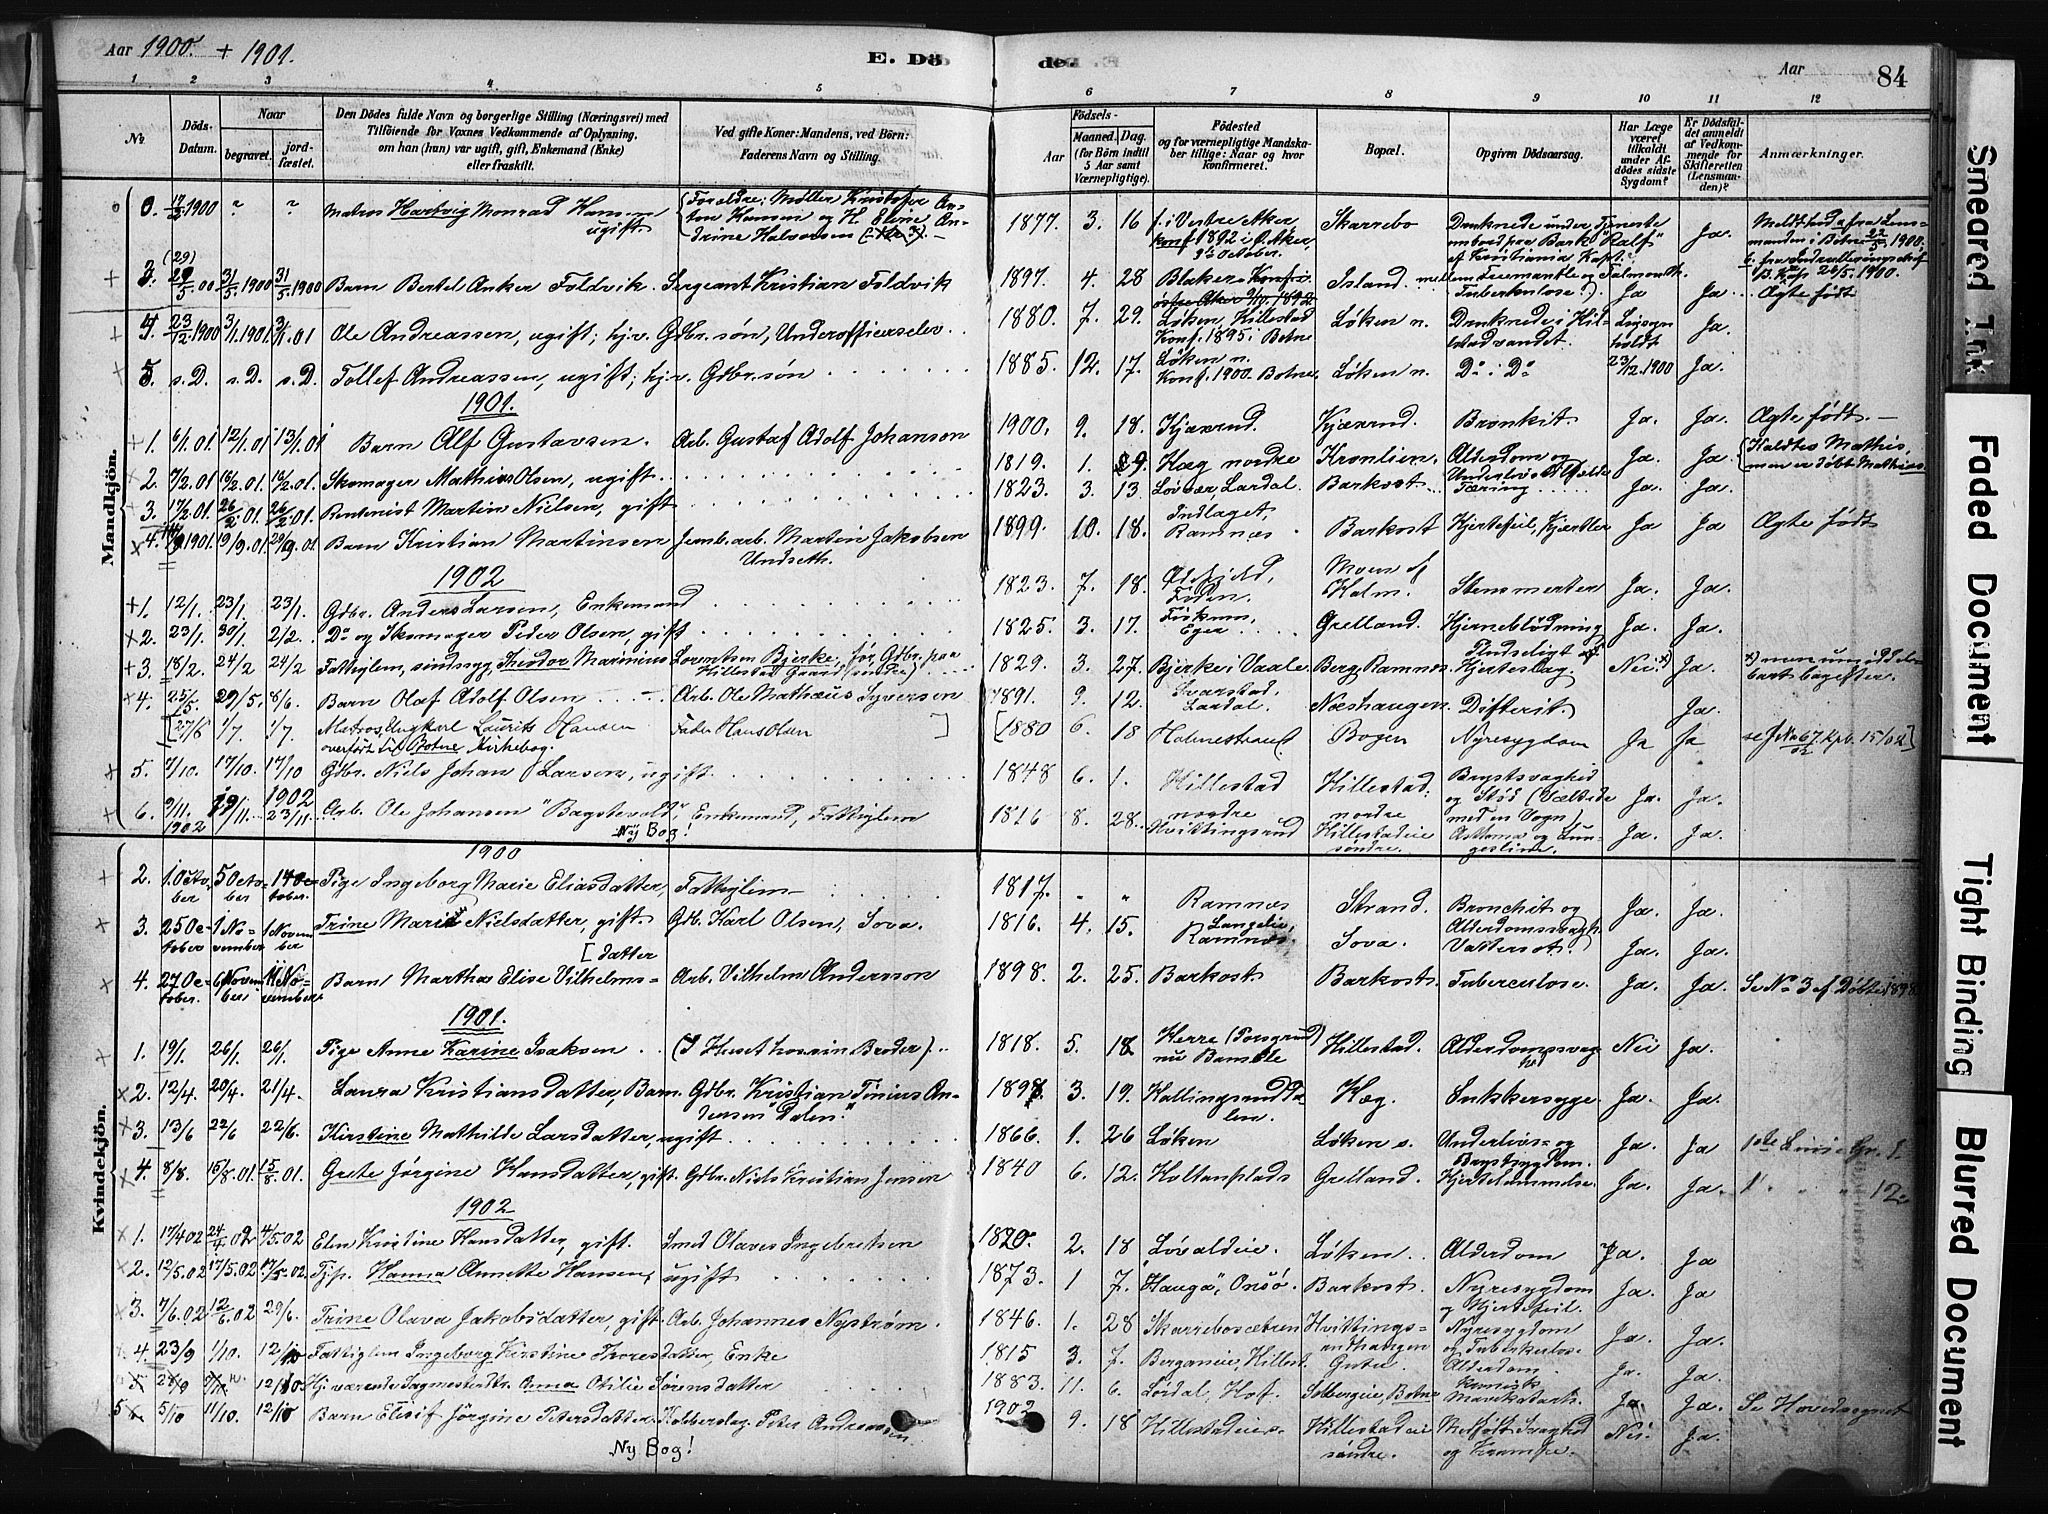 Aar 1900. + 1901.
E. Dö
de.
Aar
84
1 2 3 4 5 6 7 8 9 10 11 12
No.
Döds-Datum.
Naar
begravet.
jordfæstet.
Den Dödes fulde Navn og borgerlige Stilling (Næringsvei) med
Tilföiende for Voxnes Vedkommende af Oplysning,
om han (hun) var ugift, gift, Enkemand (Enke)
eller fraskilt.
Ved gifte Koner: Mandens, ved Börn:
Faderens Navn og Stilling.
Födsels-
Aar
Maaned. Dag.
(for Börn indtil
5 Aar samt
Værnepligtige).
Födested
og for værnepligtige Mandska-
ber tillige: Naar og hvor
konfirmeret.
Bopæl.
Opgiven Dödsaarsag.
Har Læge
været
tilkaldt
under Af-
dödes sidste
Sygdom?
Er Dödsfal-
det anmeldt
af Vedkom-
mende for
Skifteretten
(Lensman-
den)?
Anmærkninger.
Mandkjön.
0. 1900 ? ? Matros Hartvig Monrad Hansen ugift (Foreldre: Møller Kristofer Anton Hansen og H. Andrine Halvorsen 1877. 3. 16 f. i Vestre Aker konf. 1892 i Ø. Aker, October. Skarrebo Druknede under Tjeneste ombord paa Bark "Ralf" af Kristiania Ja. Lensmanden i Botne 22/5 1900.
3. (29) 5.00 31/5 1900 31/5 1900 Barn Bertel Anker Foldvik Sergeant Kristian Foldvik 1897. 4. 28 Blaker Island Tuberkulose Ja Ja Ægte født
4. 23/12 1900 3/1 1901 3/1.01 Ole Andreassen, ugift; hjv. Gdbr. søn, Underofficerselev 1880. 7. 29. Løken, Hillestad Konf. 1895 i Botne Løken n. Druknede i Hillestadvandet. Ligsyn holdt Ja.
5. s.D. s.D. s.D. Tollef Andreassen, ugift; hjv. Gdbr. søn 1885. 12. 17. Løken n. Konf. 1900. Botne. Løken n. Do i Do 23/12.1900 Ja.
1901.
1. 6/1.01 12/1.01 13/1.01 Barn Alf Gustavsen. Arb. Gustaf Adolf Johanson 1900. 9. 18. Kjærrud. Kjærrud. Bronkit. Ja. Ja. Ægte født.
2. 7/2.01 Skomager Mathius Olsen, ugift 1819. 1. 29. Hæg nordre Kronlien. Alderdom og Ja. Ja. (Kaldtes Mathis, men er døbt Mathius.
3. 17/2.01. 26/2.01 26/2.01. Rentenist Martin Nielsen, gift 1823. 3. 13. Lardal. Barkost. Tæring Ja. Ja.
4. 9 1901. 19/9.01. .01 Barn Kristian Martinsen Jernb. arb. Martin Jakobsen Undseth. 1899. 10. 18. Ramnæs Barkost Hjertefeil, Ja Ja Ægte født
1902
1. 12/1. 23/1. 23/1. Gdbr. Anders Larsen, Enkemand 1823. 7. 18. Holm. Stensmerter Ja. Ja.
2. 23/1. 30/1 2/2. Do og Skomager Peder Olsen, gift 1825. 3. 17. Fiskum, Eger Grelland. Hjerneblødning Ja. Ja.
3. 18/2. 24/2 24/2 Fattiglem, sindssyg, Theodor Marinius Lorentsen Bjerke, før Gdbr. paa Hillestad 1829. 3. 27. Bjerke i Vaale Berg Ramnæs. Hjerteslag Nei. x) Ja. x) men umiddelbart bagefter.
4. 25/5. 29/5. 8/6. Barn Olaf Adolf Olsen Arb. Ole Mathæus Syversen 1891. 9. 12. Svarstad, Lardal. Næshaugen. Difterit. Ja.
[27/6 1/7. 1/7. Matros, Ungkarl Laurits Hansen overført til Botne Kirkebog. Fader Hans Olsen] [1880 6. 18 Holmestrand Bogen Nyresygdom Ja Ja se No 67 Kpb. 15/02]
5. 7/10. 17/10. 17/10 Gdbr. Niels Johan Larsen, ugift 1848 6. 1. Hillestad nordre Hillestad nordre Brystsvaghed og Stød (Væltede med en Vogn) Ja. Ja.
6. 9/11. 1902 19/11. 1902 23/11. Arb. Ole Johansen "Bagstevold", Enkemand, Fattiglem 1816 8. 28. Hvittingsrud Hillestadeie søndre. Asthma og Lungeslim. Ja. Ja.
Ny Bog!
Kvindekjön.
1900
2. 1.October 5 October 14 October. Pige Ingeborg Marie Eliasdatter, Fattiglem 1817. " " Ramnæs Strand. Bronchit og Alderdomssvagh. Ja. Ja.
3. 25 October 1 November 1 November Trine Marie Nielsdatter, gift. Gdb. Karl Olsen, Sova. 1816. 4. 15. Langelie, Ramnæs. Sova. Vattersot. Ja. Ja.
4. 27 October. 6 November 11 November Barn Martha Elise Vilhelms-[datter Arb. Vilhelm Andersson 1898. 2. 25. Barkost. Barkost. Tuberculose. Ja. Ja. Se No 3 af Døbte 1898
1901.
1. 19/1. 26/1. 26/1. Pige Anne Karine Isaksen (I Huset hos sin Broder) 1818. 5. 18 Herre (Porsgrund) nu Bamble Hillestad. Alderdomssvaghed Nei Ja.
2. 12/4. 20/4. 21/4. Laura Kristiansdatter, Barn. Gdbr. Kristian Tinius Andersen "Dalen" 1898. 3. 19. Hallingsruddalen. Hæg. Sukkersyge. Ja. Ja.
3. 13/6 22/6 22/6. Kirstine Mathilde Larsdatter, ugift 1866. 1. 26 Løken Løken s. Underlivs- og Brystsygdom. Ja. Ja
4. 8/8. 15/8.01. 15/8.01. Grete Jørgine Hansdatter, gift. Gdbr. Niels Kristian Jensen 1840 6. 12. Holtanplads Grelland. Hjertelammelse. Ja. Ja.
1902
1. 17/4 02 24/4 02 4/5.02 Elen Kristine Hansdatter, gift. Smed Olaves Ingebretsen 1820. 2. 18 Løvaldeie. Løken. Alderdom Ja. Ja
2. 12/5.02 17/5.02 17/5.02. Tjp. Hanna Annette Hansen, ugift 1873. 1 7. "Hauga", Onsø. Barkost. Nyresygdom og Hjertefeil. Ja. Ja
3. 7/6.02 12/6.02 29/6. Trine Olava Jakobsdatter, gift. Arb. Johannes Nystrøm. 1846. 1. 28 Skarrebosætren Hvittingsrudhaugen Nyresygdom og Tuberkulos. Ja. Ja.
4. 23/9 1/10. 12/10 Fattiglem Ingeborg Kirstine Thoresdatter, Enke 1815 3. 7. Berganeie, Hillest. Alderdom. Ja. Ja.
5 12/10 Hj. værende Anna Otilie Sørensdatter 1883. 11. 6. Lørdal, Hof. Solbergeie, Botne Ja. Ja. Se Hovedregistret
5 5/10 11/10. 12/10 Barn Elisif Jørgine Petersdatter Peter Andreassen 1902 9. 18 Hillestadeie s. Hillestadeie søndre. Medfødt Svaghed og Krampe. Nei. Ja.
Ny Bog!
Smeared Ink
Faded Document
Tight Binding
Blurred Document